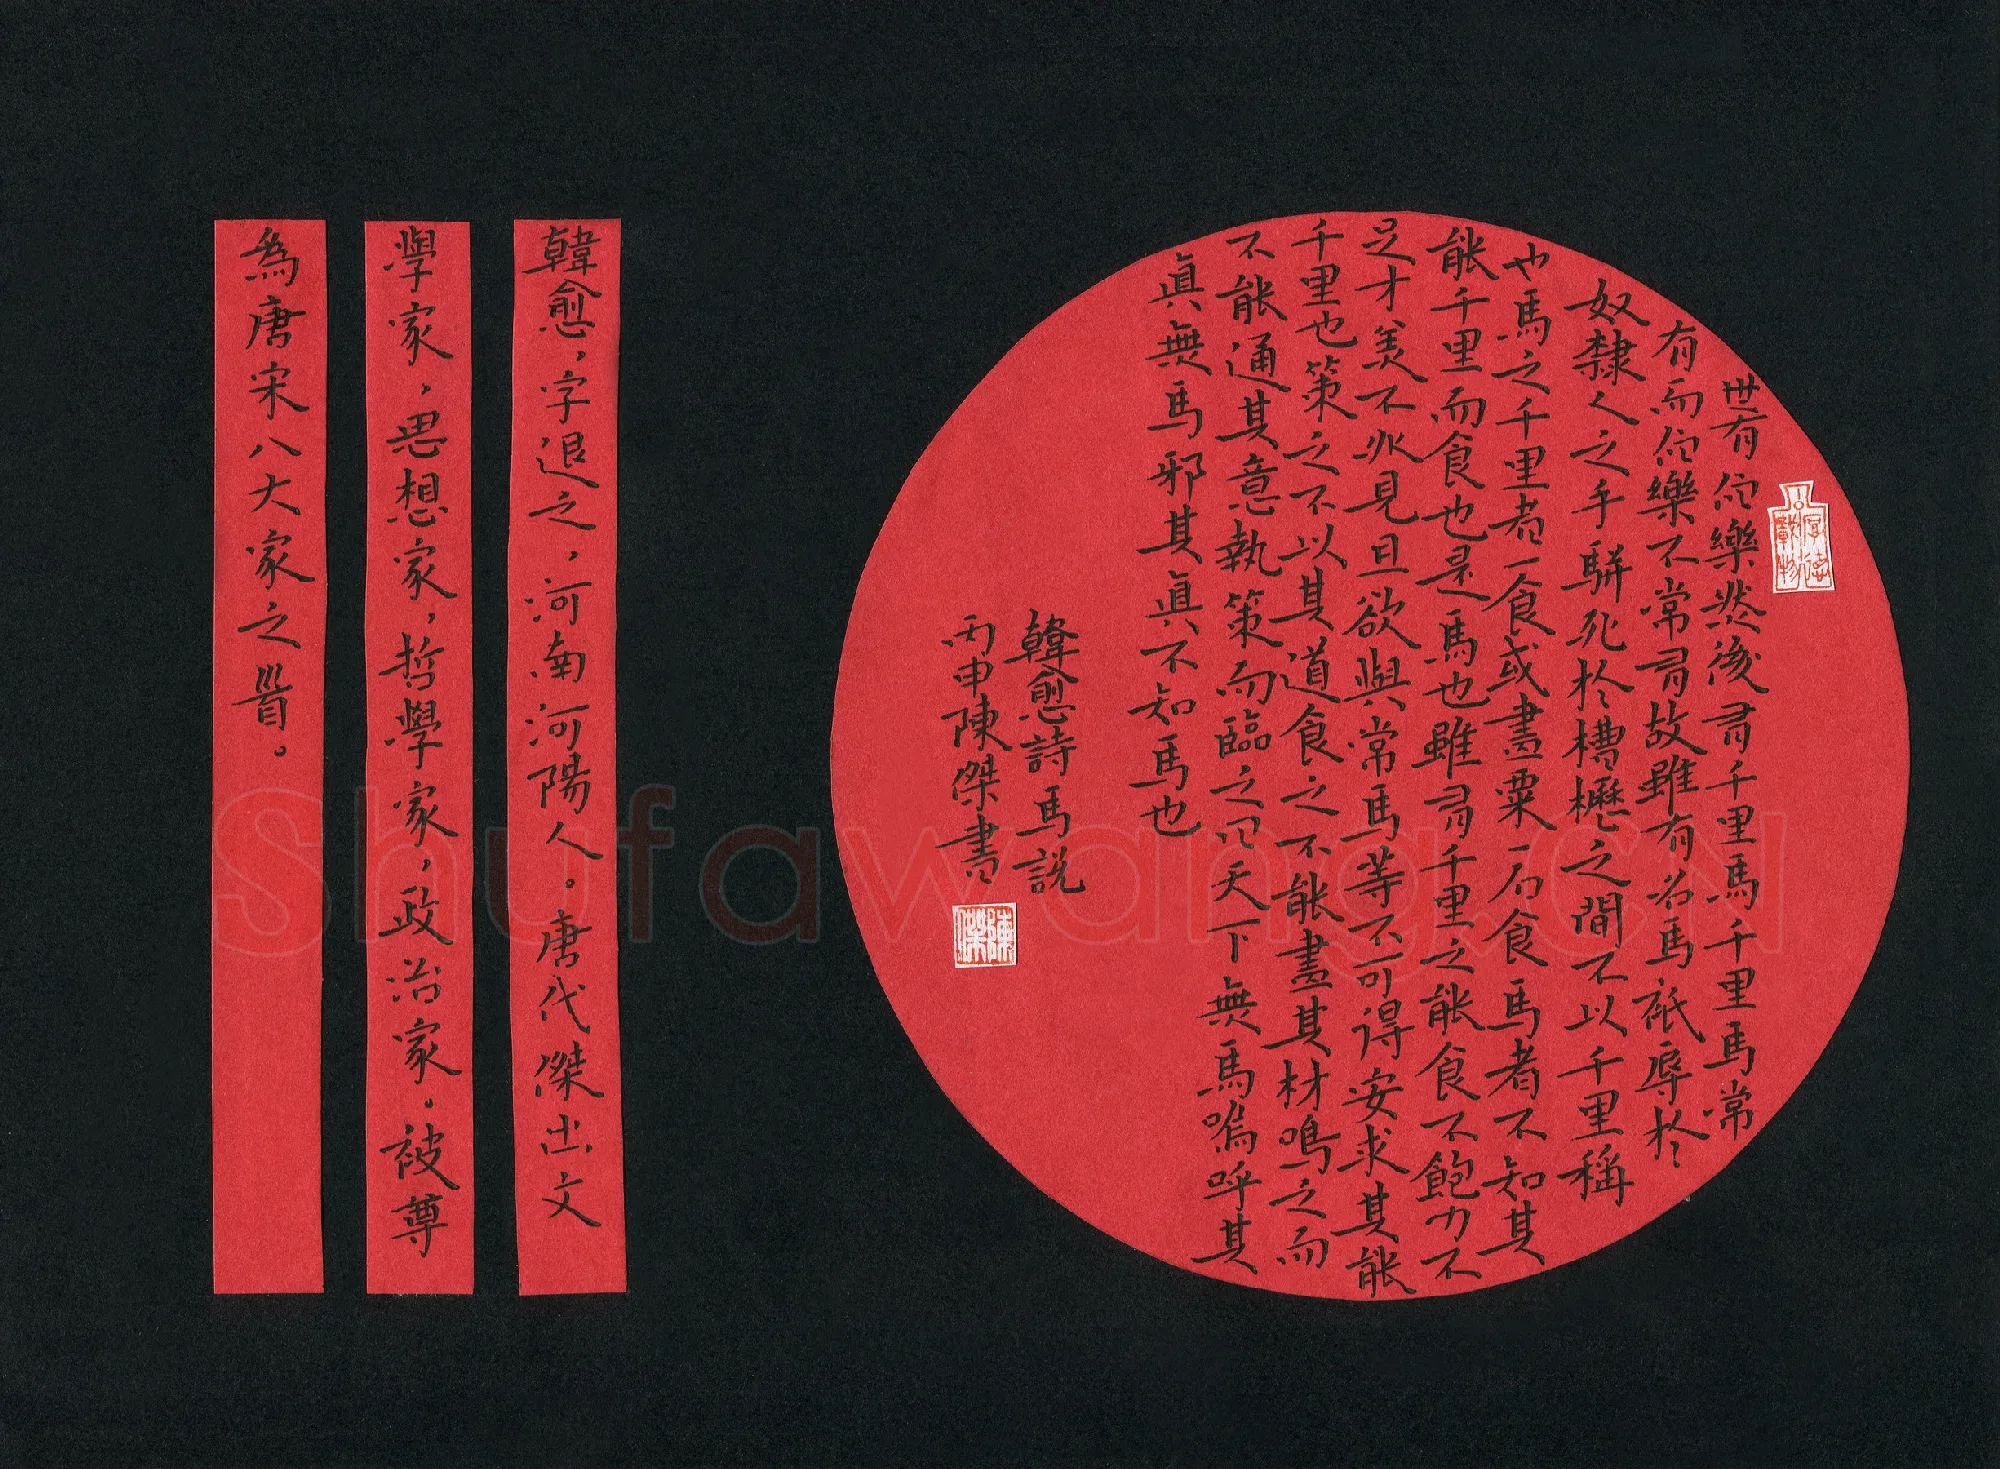 世有伯樂然後有千里馬千里馬常
有而伯樂不常有故雖有名馬祇辱於
奴隸人之手駢死於槽櫪之間不以千里稱
也馬之千里者一食或盡粟一石食馬者不知其
能千里而食也是馬也雖有千里之能食不飽力不
足才美不外見且欲與常馬等不可得安求其能
千里也策之不以其道食之不能盡其材鳴之而
不能通其意執策而臨之曰天下無馬嗚呼其
眞無馬邪其眞不知馬也
韓愈詩馬說
丙申陳傑書
厚德載物
陳傑
韓愈，字退之，河南河陽人。唐代傑出文
學家，思想家，哲學家，政治家。被尊
為唐宋八大家之首。
Shufawang.CN